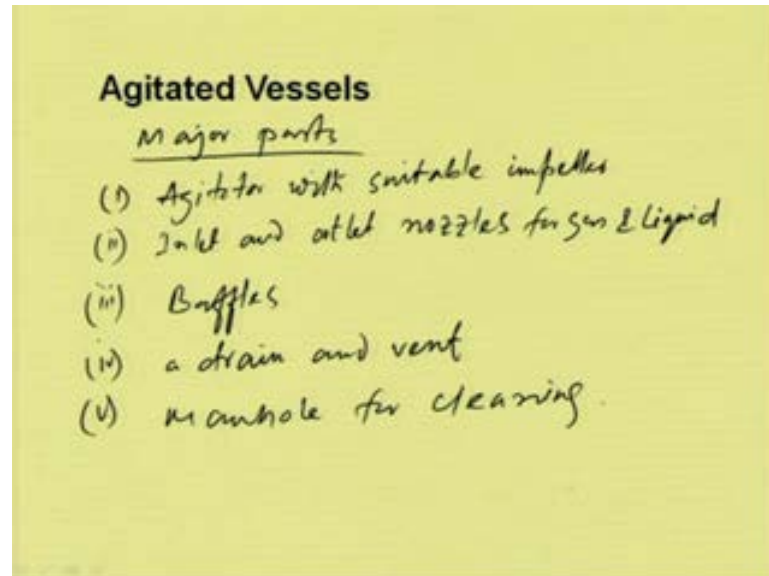 Agitated Vessels
Major parts
(i) Agitator with suitable impeller
(ii) Inlet and outlet nozzles for gas & Liquid
(iii) Baffles
(iv) a drain and vent
(v) manhole for cleaning.